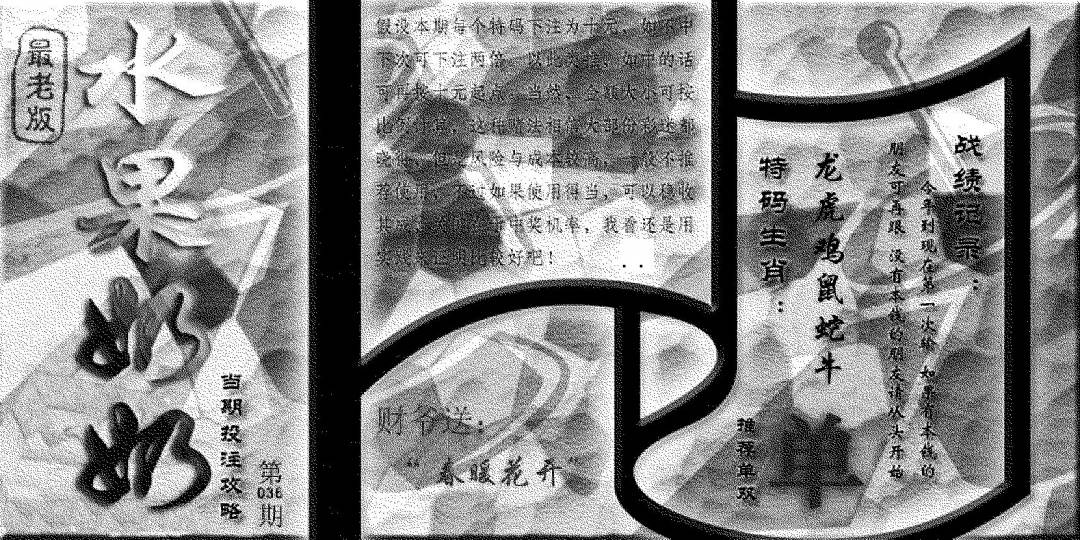 最老版
水果奶奶
当期投注攻略
第036期
假设本期每个特码下注为十元，如不中
下次可下注两倍，以此类推。如中的话
可再按十元起点，当然，金额大小可按
比例下注，这种赌法相信大部份彩迷都
晓得，但是风险与成本较高，一般不推
荐使用，不过如果使用得当，可以稳收
其成，
中奖机率，我看还是用
实践来证明比较好吧！
财爷送：
“春暖花开”
战绩记录：
今年到现在第一次输 如果有本钱的
朋友可再跟 没有本钱的朋友请从头开始
龙虎鸡鼠蛇牛
特码生肖：
推荐单双
单